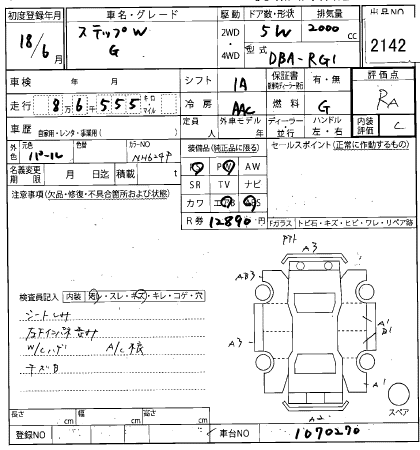 初度登録年月 車名・グレード 駆動 ドア数・形状 排気量 出品NO
18/6月 ステップW G 2WD 4WD 5W 2000 cc 2142
型式 DBA-RG1
車検 年 月 シフト IA 保証書 有・無 評価点
走行 8万6千555 キロ マイル 冷房 AAC 燃料 G RA
車歴 自家用・レンタ・事業用( ) 定員 人 外車モデル ディーラー 並行 ハンドル 左・右 内装評価 C
外色 元色 パール 色替 カラーNO NH624P 装備品(純正品に限る) セールスポイント(正常に作動するもの)
名義変更期限 月 日迄 積載 t PS PW AW
注意事項(欠品・修復・不具合箇所および状態) SR TV ナビ
カワ エアB ABS
R券 12890円 Fガラス トビ石・キズ・ヒビ・ワレ・リペア跡
A3
検査員記入 内装 ・スレ・キズ・キレ・コゲ・穴
A3 A1 B1
W/Cハゲ A/C
A1
スペア
A2
長さ cm 幅 cm 高さ cm
登録NO 車台NO 1070270